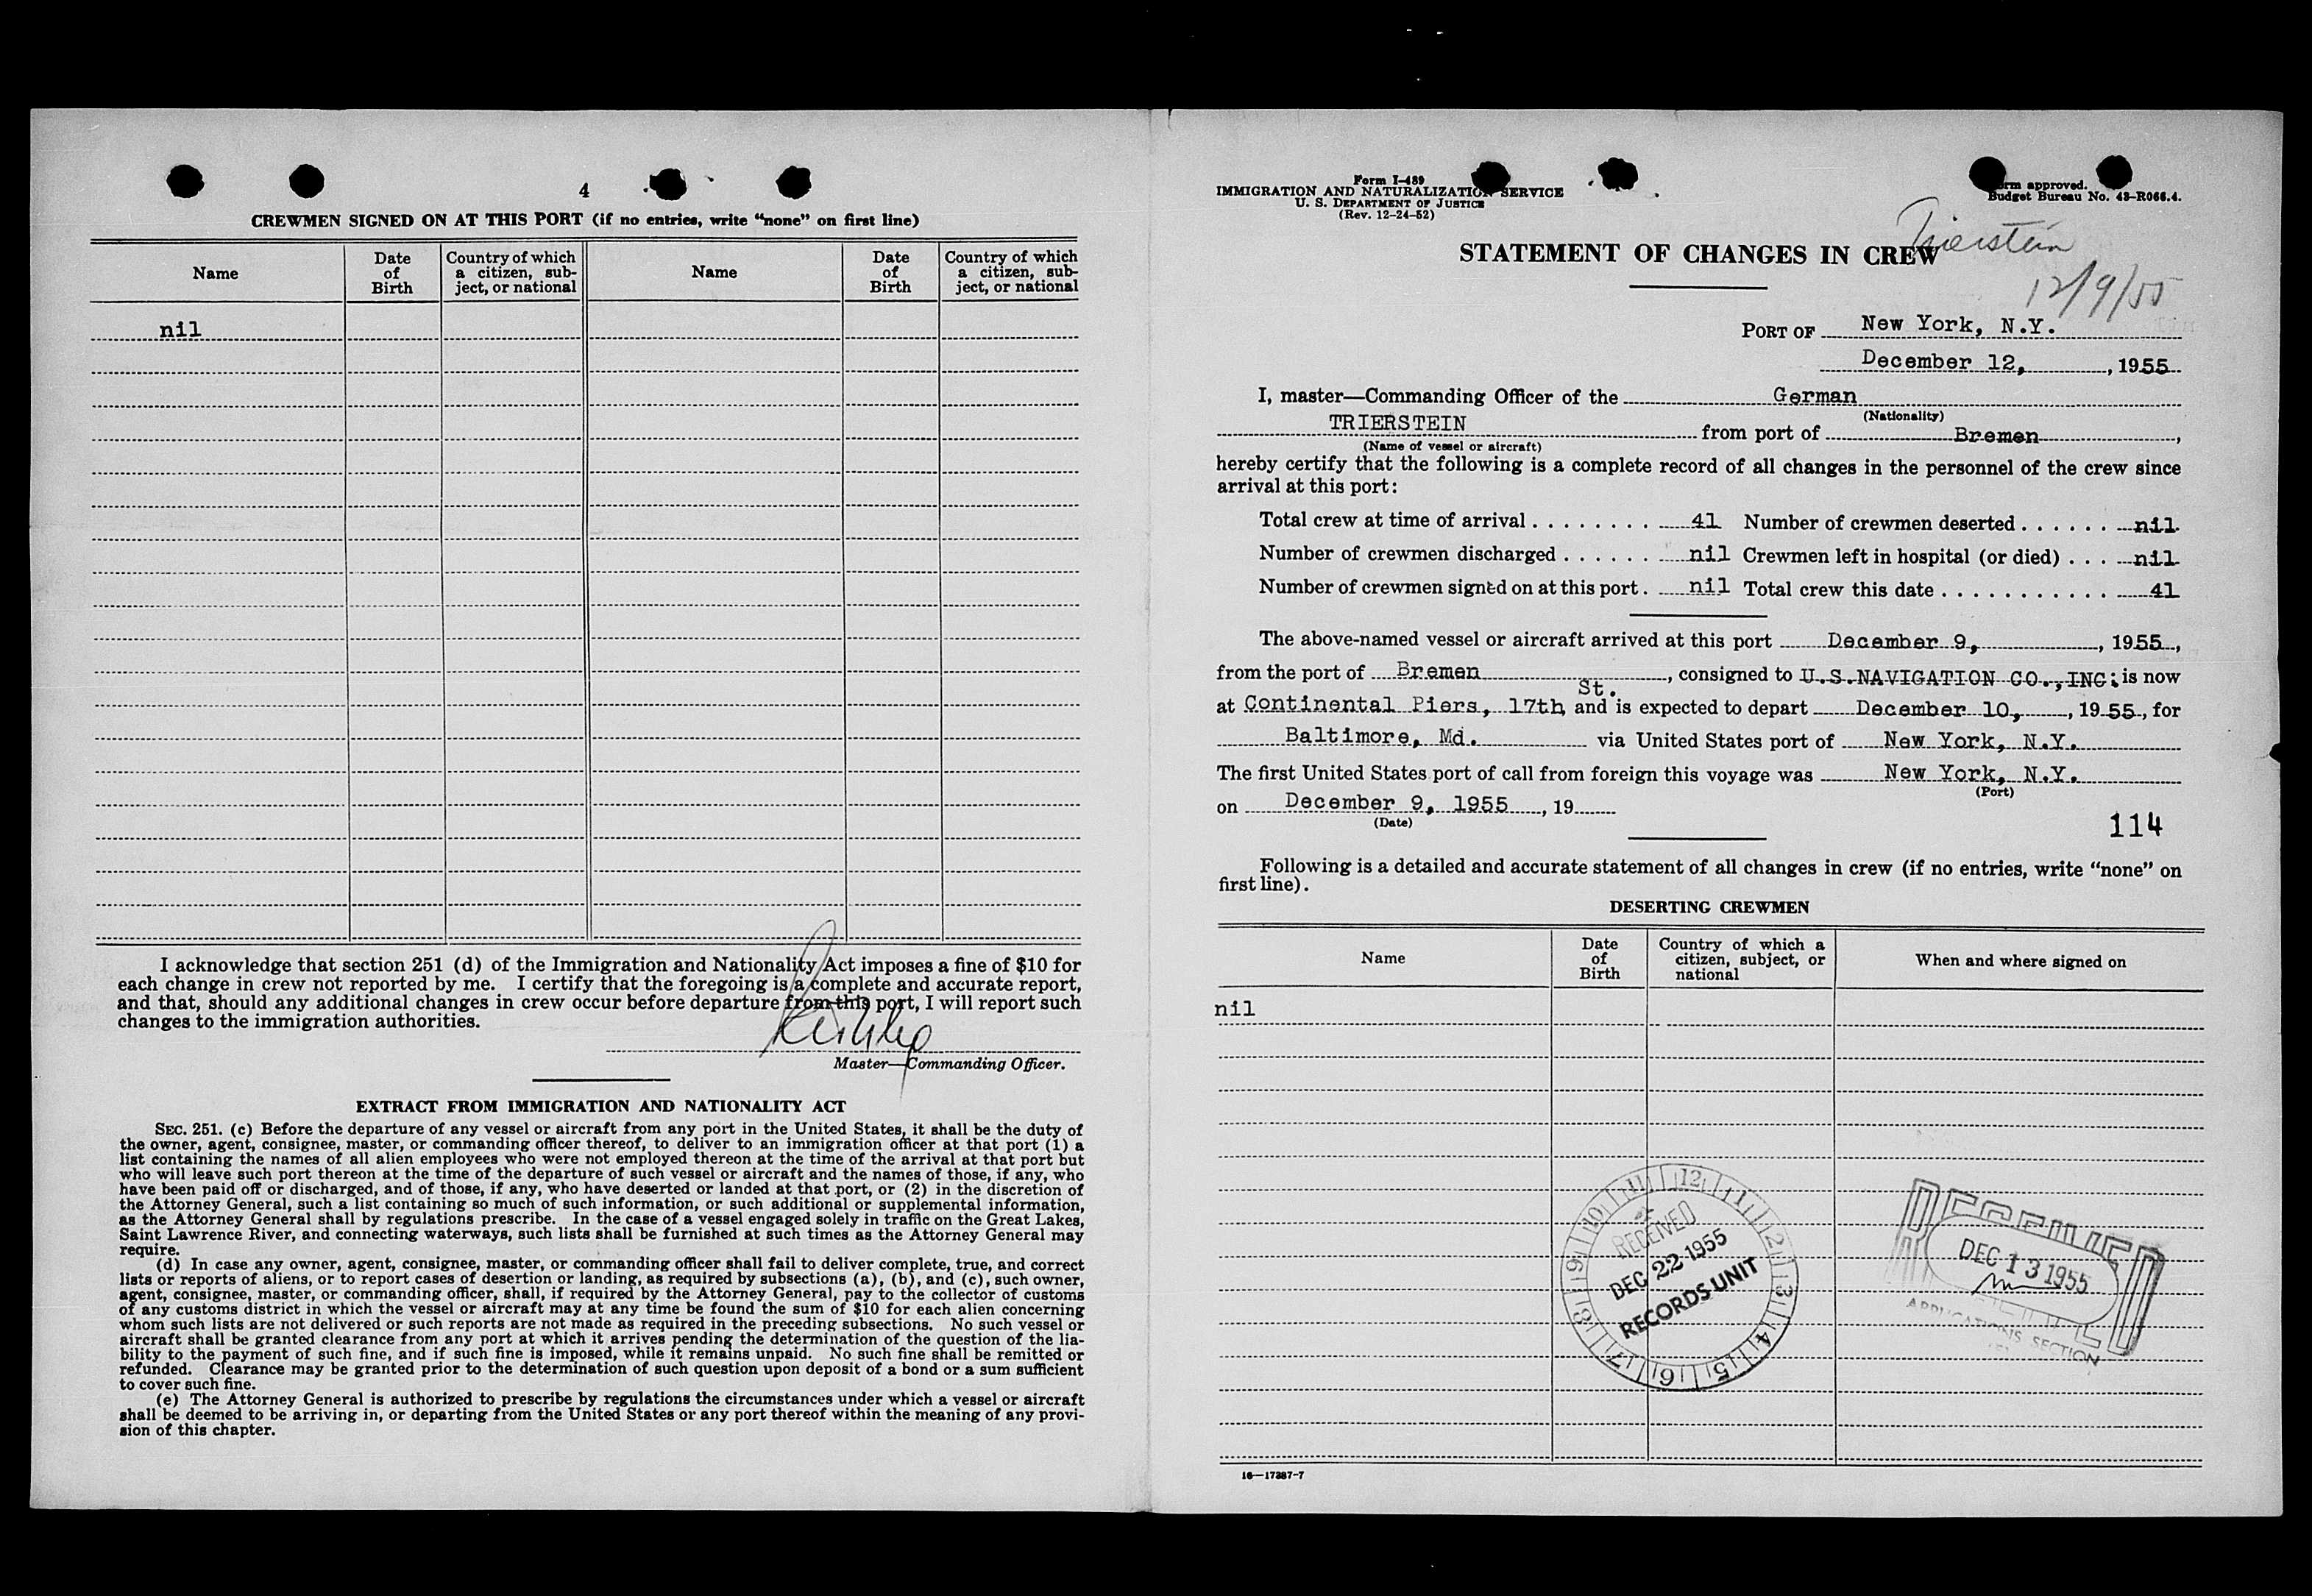 4
CREWMEN SIGNED ON AT THIS PORT (if no entries, write “none” on first line)
Name
Date of Birth
Country of which a citizen, subject, or national
Name
Date of Birth
Country of which a citizen, subject, or national
nil
I acknowledge that section 251 (d) of the Immigration and Nationality Act imposes a fine of $10 for
each change in crew not reported by me. I certify that the foregoing is a complete and accurate report,
and that, should any additional changes in crew occur before departure from this port, I will report such
changes to the immigration authorities.
Master—Commanding Officer.
EXTRACT FROM IMMIGRATION AND NATIONALITY ACT
SEC. 251. (c) Before the departure of any vessel or aircraft from any port in the United States, it shall be the duty of
the owner, agent, consignee, master, or commanding officer thereof, to deliver to an immigration officer at that port (1) a
list containing the names of all alien employees who were not employed thereon at the time of the arrival at that port but
who will leave such port thereon at the time of the departure of such vessel or aircraft and the names of those, if any, who
have been paid off or discharged, and of those, if any, who have deserted or landed at that port, or (2) in the discretion of
the Attorney General, such a list containing so much of such information, or such additional or supplemental information,
as the Attorney General shall by regulations prescribe. In the case of a vessel engaged solely in traffic on the Great Lakes,
Saint Lawrence River, and connecting waterways, such lists shall be furnished at such times as the Attorney General may
require.
(d) In case any owner, agent, consignee, master, or commanding officer shall fail to deliver complete, true, and correct
lists or reports of aliens, or to report cases of desertion or landing, as required by subsections (a), (b), and (c), such owner,
agent, consignee, master, or commanding officer, shall, if required by the Attorney General, pay to the collector of customs
of any customs district in which the vessel or aircraft may at any time be found the sum of $10 for each alien concerning
whom such lists are not delivered or such reports are not made as required in the preceding subsections. No such vessel or
aircraft shall be granted clearance from any port at which it arrives pending the determination of the question of the lia-
bility to the payment of such fine, and if such fine is imposed, while it remains unpaid. No such fine shall be remitted or
refunded. Clearance may be granted prior to the determination of such question upon deposit of a bond or a sum sufficient
to cover such fine.
(e) The Attorney General is authorized to prescribe by regulations the circumstances under which a vessel or aircraft
shall be deemed to be arriving in, or departing from the United States or any port thereof within the meaning of any provi-
sion of this chapter.
Form I-489
IMMIGRATION AND NATURALIZATION SERVICE
U. S. DEPARTMENT OF JUSTICE
(Rev. 12-24-52)
approved.
Budget Bureau No. 43-R066.4.
Trierstein
12/9/55
STATEMENT OF CHANGES IN CREW
PORT OF New York, N.Y.
December 12, , 1955
I, master—Commanding Officer of the German
(Nationality)
TRIERSTEIN from port of Bremen ,
(Name of vessel or aircraft)
hereby certify that the following is a complete record of all changes in the personnel of the crew since
arrival at this port:
Total crew at time of arrival . . . . . . . . 41 Number of crewmen deserted . . . . . . nil
Number of crewmen discharged . . . . . . nil Crewmen left in hospital (or died) . . . nil
Number of crewmen signed on at this port . nil Total crew this date . . . . . . . . . . . . 41
The above-named vessel or aircraft arrived at this port December 9, , 1955 ,
from the port of Bremen , consigned to U.S.NAVIGATION CO.,INC; is now
at Continental Piers, 17th St. and is expected to depart December 10, , 1955 , for
Baltimore, Md. via United States port of New York, N.Y.
The first United States port of call from foreign this voyage was New York, N.Y.
(Port)
on December 9, 1955 , 19
(Date)
114
Following is a detailed and accurate statement of all changes in crew (if no entries, write “none” on
first line).
DESERTING CREWMEN
Name
Date of Birth
Country of which a citizen, subject, or national
When and where signed on
nil
12 1 2 3 4 5 6 7 8 9 10 11
RECEIVED
DEC 22 1955
RECORDS UNIT
DEC 13 1955
APPLICATIONS SECTION
16—17387-7